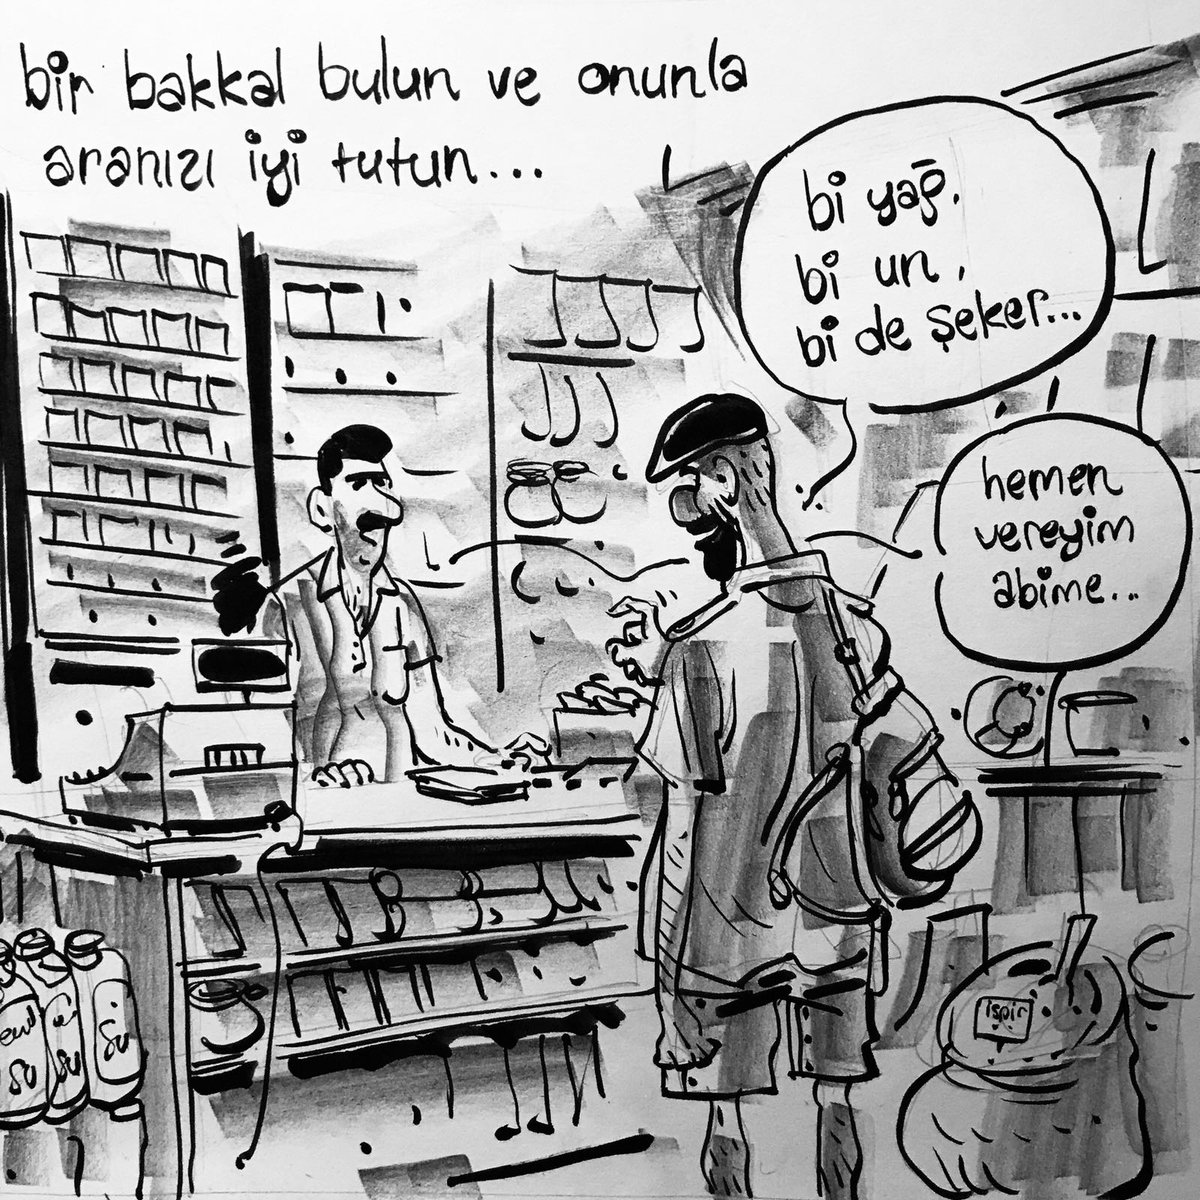 bir bakkal bulun ve onunla
aranızı iyi tutun...
bi yağ,
bi un,
bi de şeker...
hemen
vereyim
abime...
ispir
su
su
su